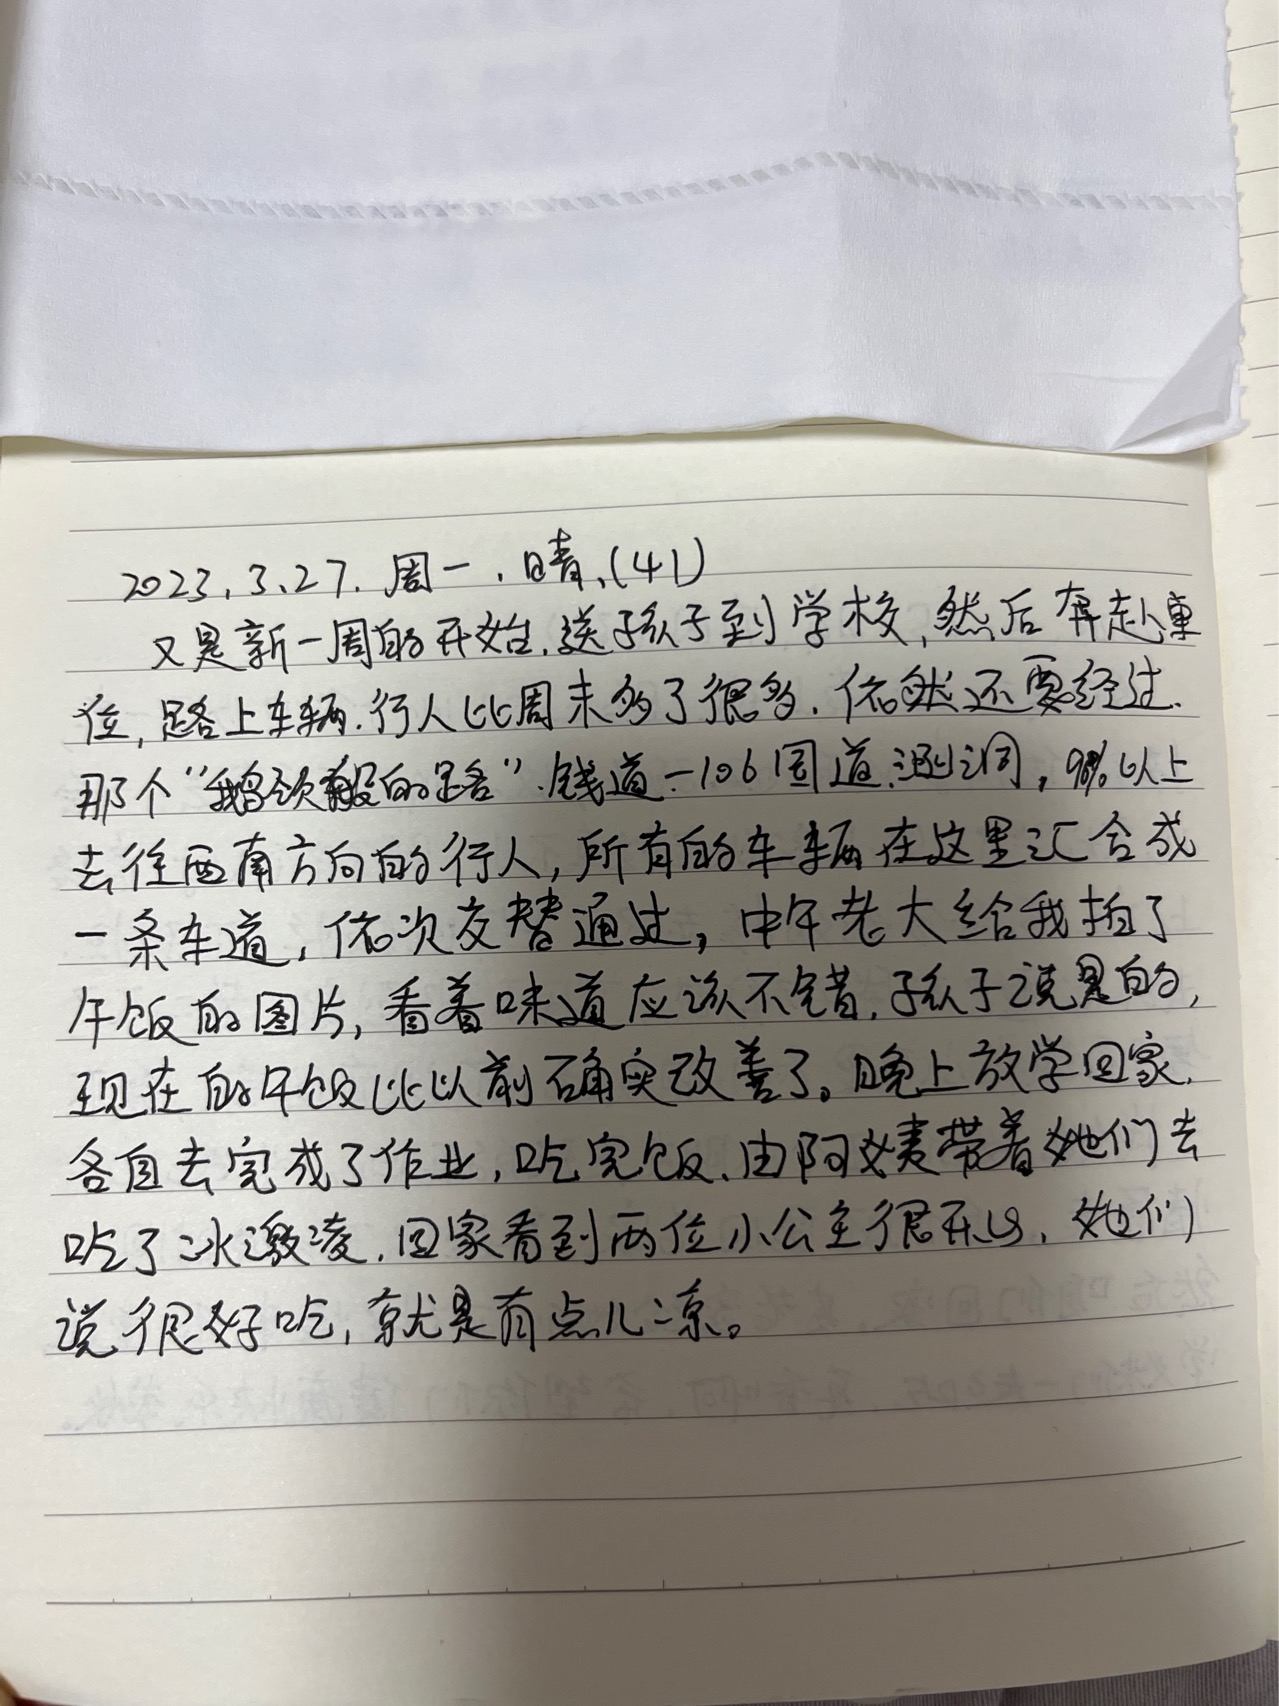 2023.3.27.周一.晴.(41)
又是新一周的开始.送孩子到学校,然后奔赴单
位,路上车辆.行人比周末多了很多.依然还要经过.
那个“鹅颈般的路”.钱道一106国道.涵洞,98%以上
去往西南方向的行人,所有的车辆在这里汇合成
一条车道,依次交替通过,中午老大给我拍了
午饭的图片,看着味道应该不错.孩子说是的,
现在的午饭比以前确实改善了。晚上放学回家.
各自去完成了作业,吃完饭.由阿姨带着她们去
吃了冰激凌.回家看到两位小公主很开心.她们
说很好吃,就是有点儿凉。